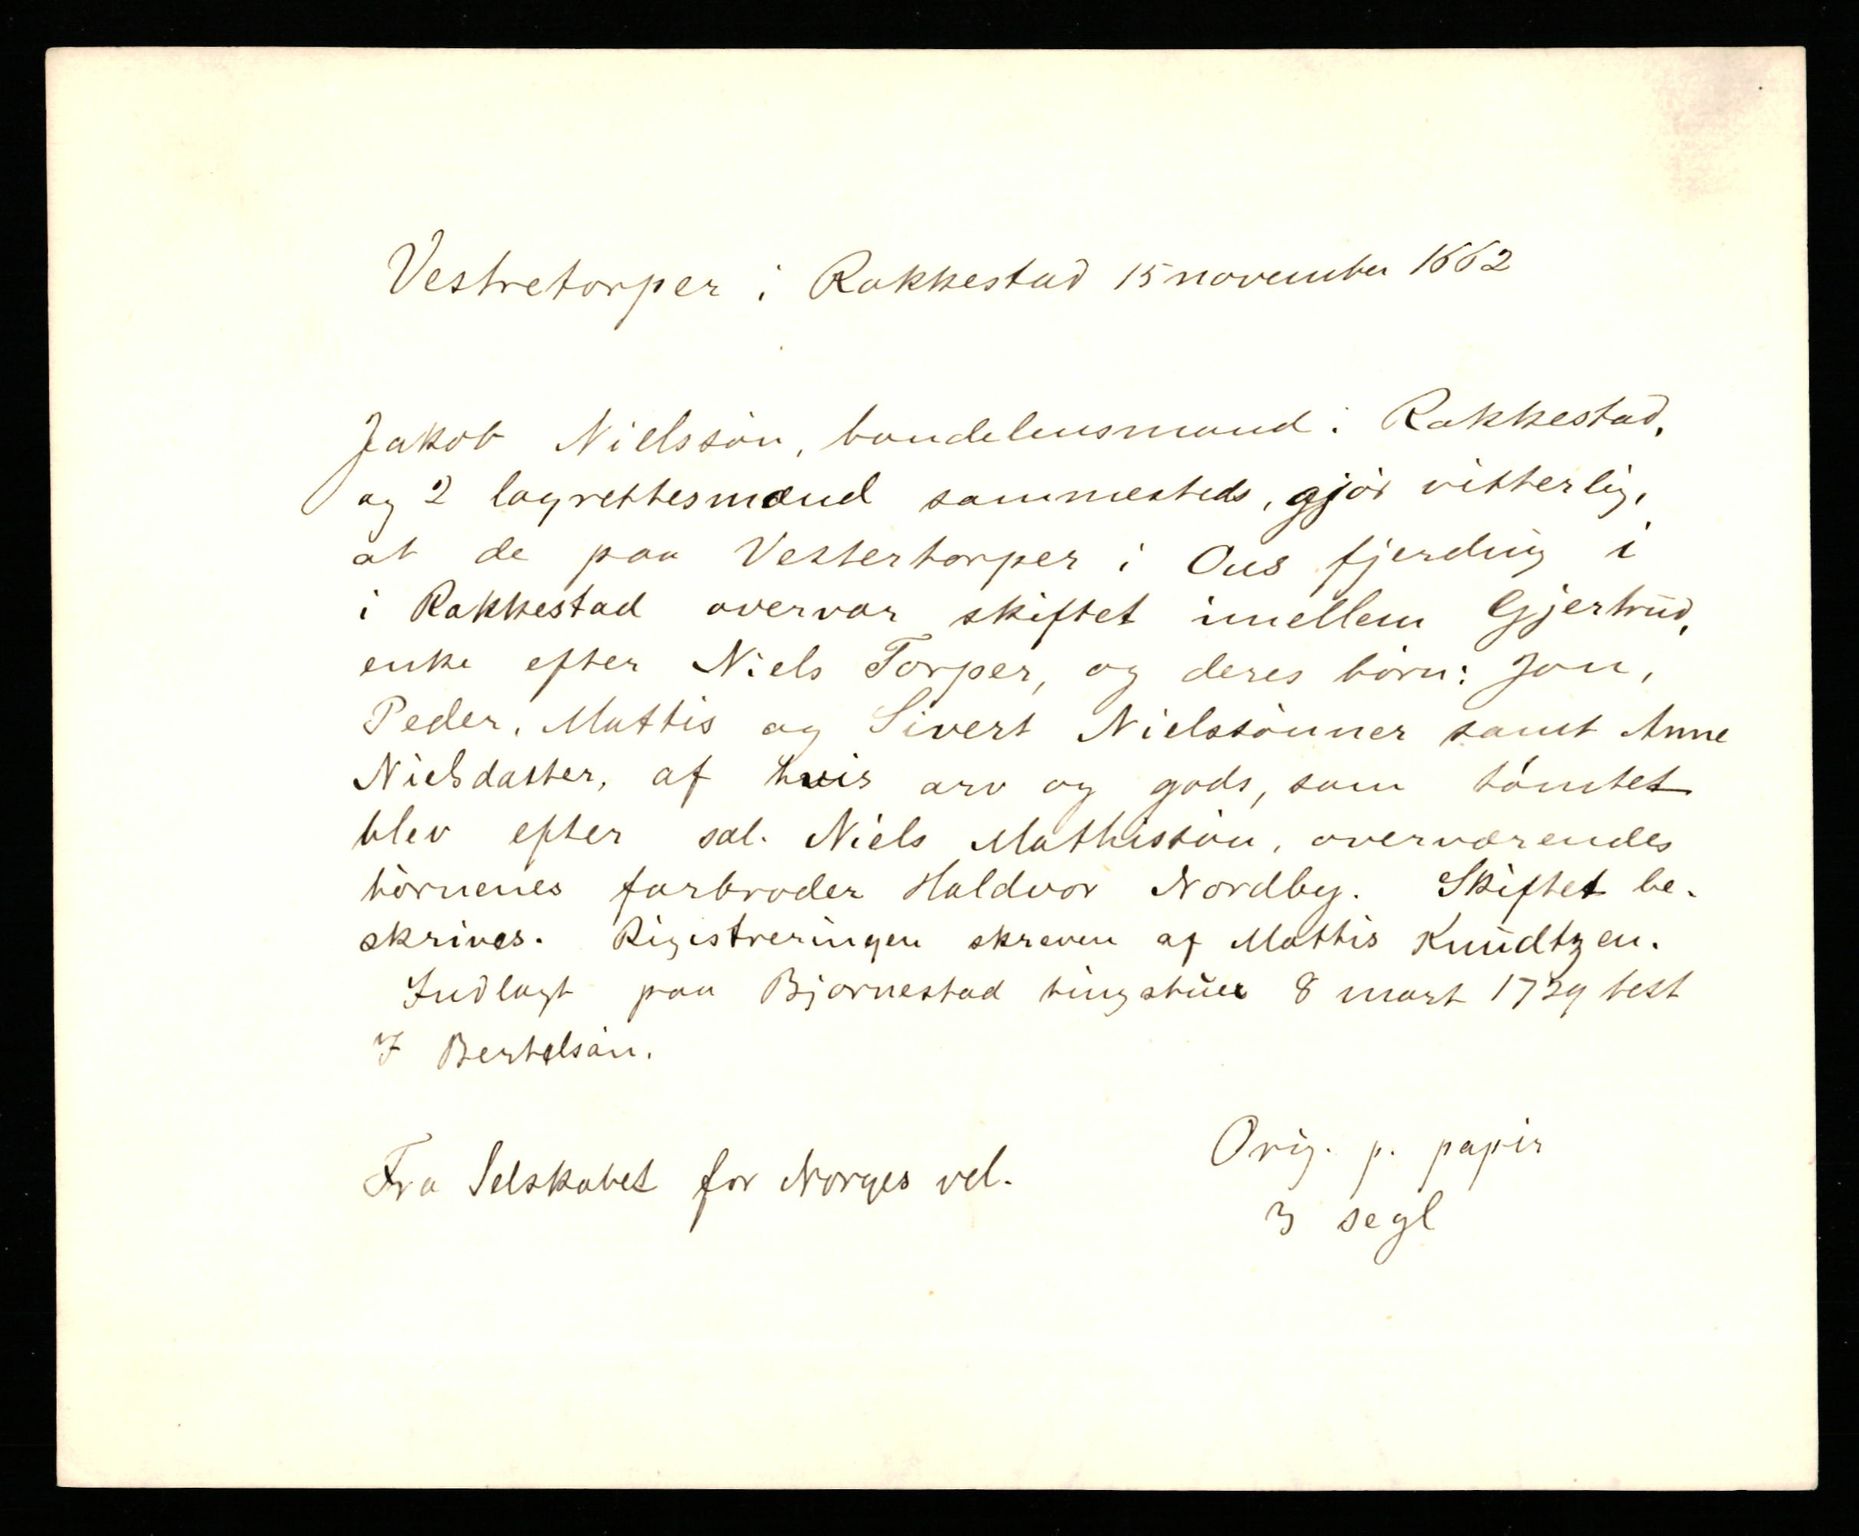 Vestretorper i Rakkestad 15 november 1662
Jakob Nielssøn, bondelensmand i Rakkestad,
og 2 lagrettesmænd sammesteds, gjør vitterlig,
at de paa Vestertorper i Ous fjerding i
i Rakkestad overvar skiftet imellem Gjertrud,
enke efter Niels Torper, og deres børn: Jon,
Peder, Mattis og Sivert Nielssønner samt Anne
Nielsdatter, af hvis arv og gods, som tømtet
blev efter sal. Niels Mathissøn, overværendes
børnenes farbroder Haldvor Nordby. Skiftet be-
skrives. Registreringen skreven af Mattis Knudtzen.
Indlagt paa Bjørnestad tingstue 8 mart 1729 test
J Bertelsøn.
Fra Selskabet for Norges vel.
Orig. p. papir
3 segl